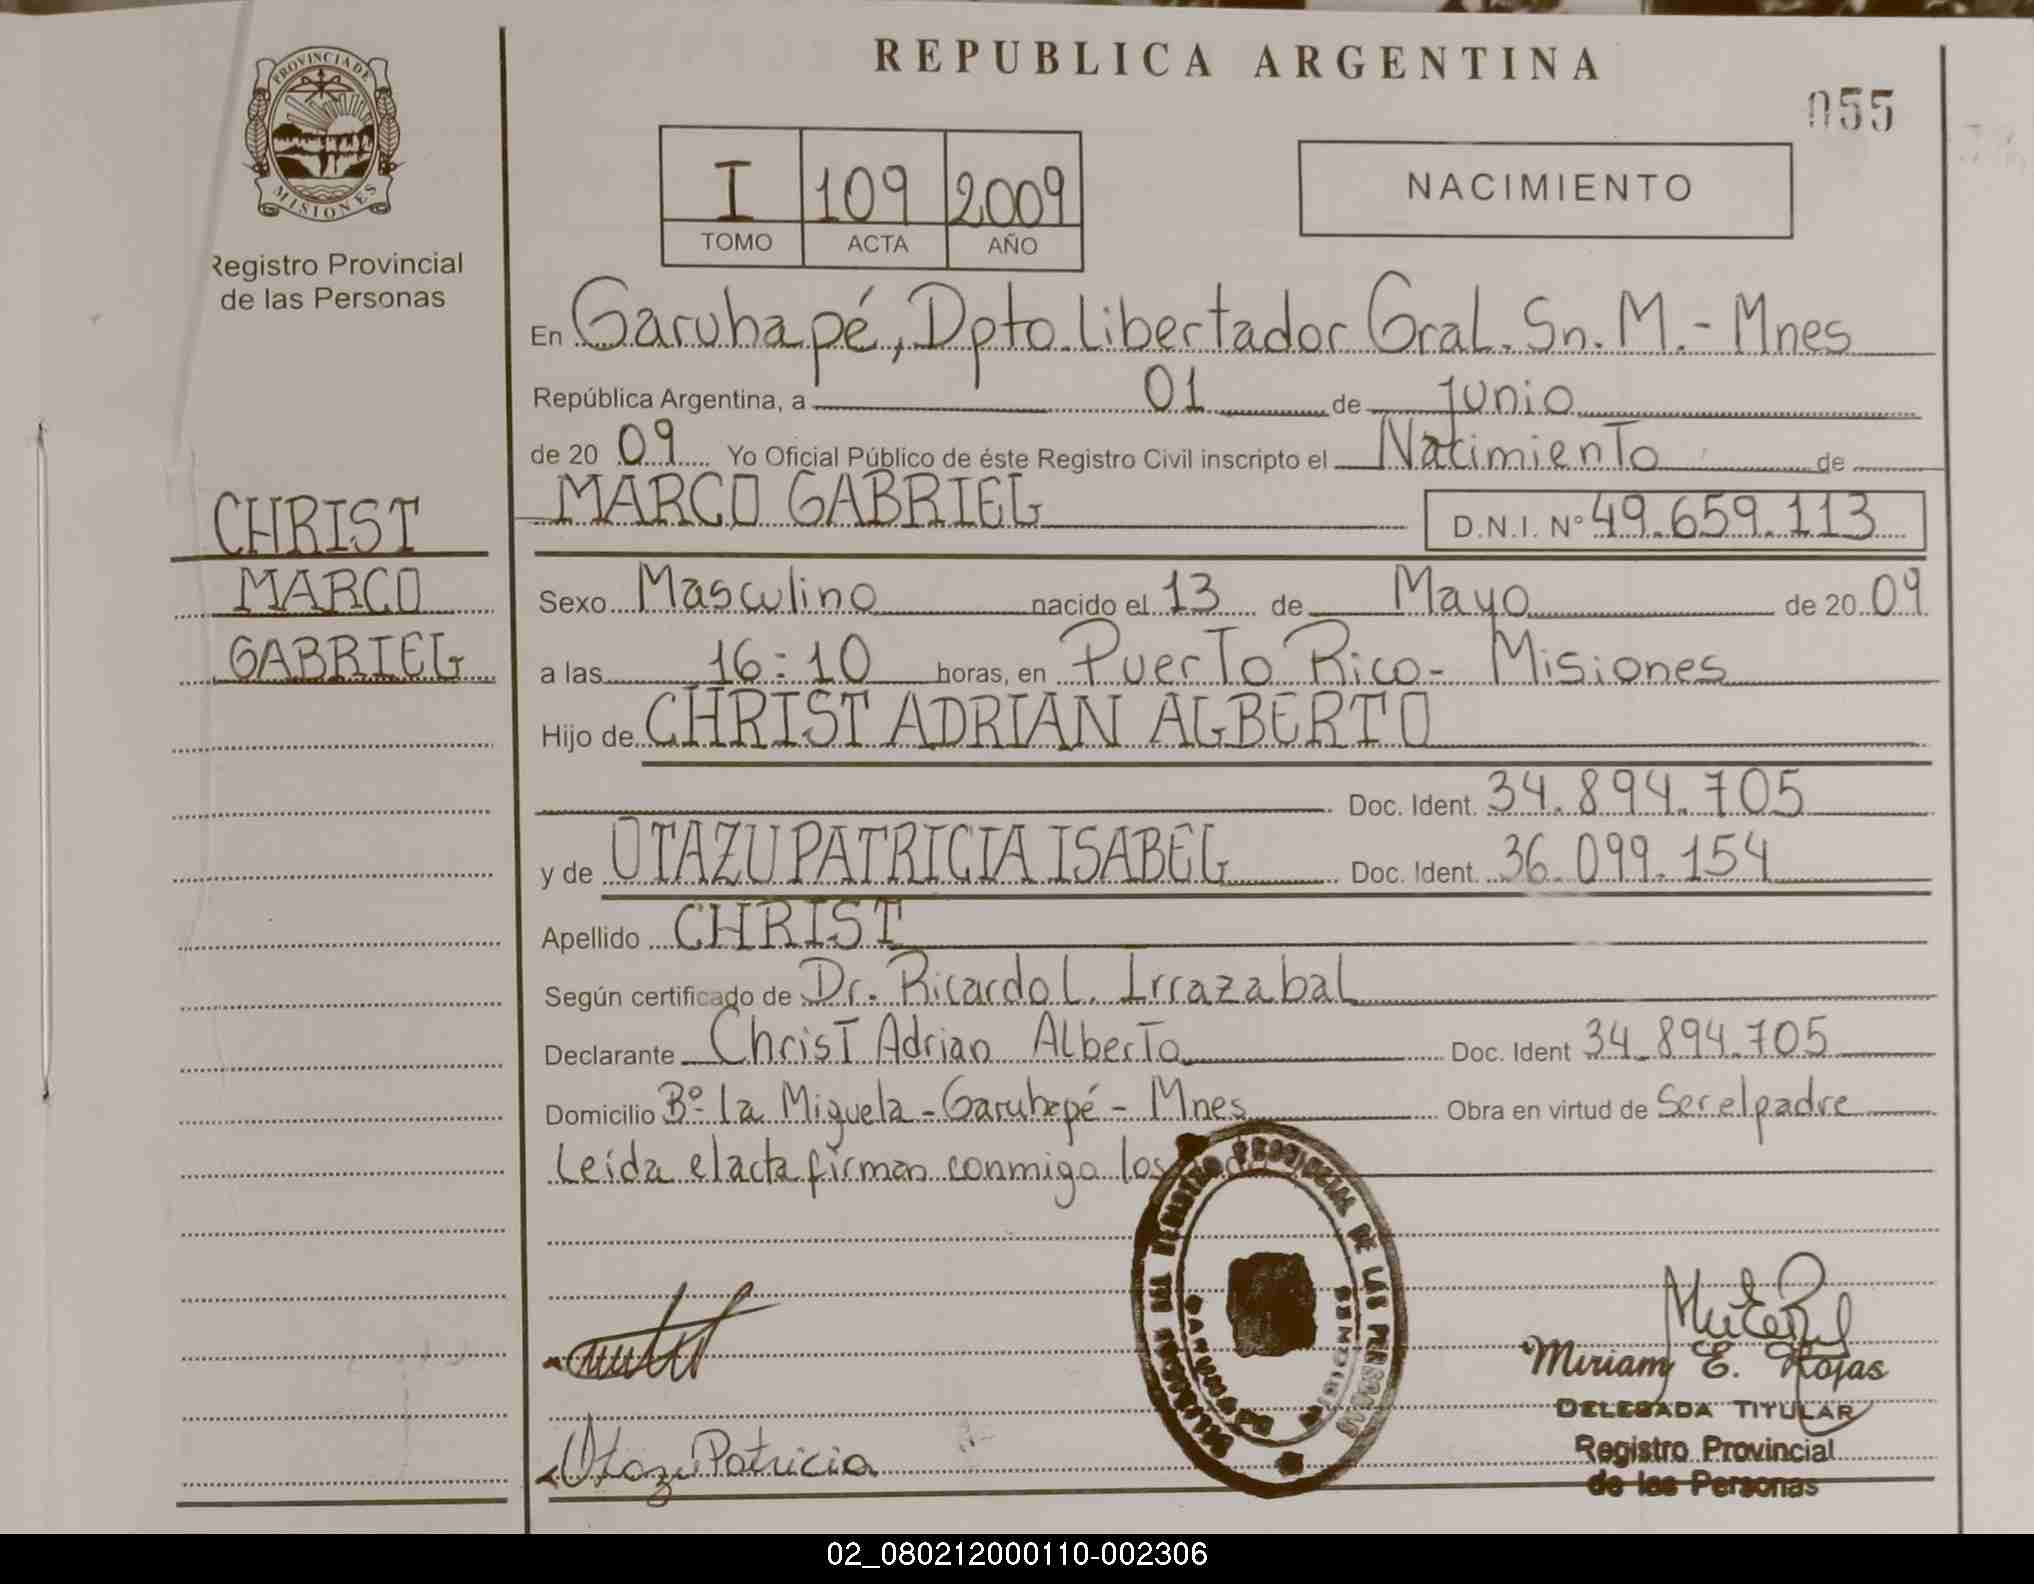 PROVINCIA DE
MISIONES
Registro Provincial
de las Personas
CHRIST
MARCO
GABRIEL
REPUBLICA ARGENTINA
055
I 109 2009
TOMO ACTA AÑO
NACIMIENTO
En Garuhapé, Dpto. Libertador Gral. Sn. M. - Mnes
República Argentina, a 01 de junio
de 20 09 Yo Oficial Público de éste Registro Civil inscripto el Nacimiento de
MARCO GABRIEL D.N.I. Nº 49.659.113
Sexo Masculino nacido el 13 de Mayo de 20 09
a las 16:10 horas, en Puerto Rico - Misiones
Hijo de CHRIST ADRIAN ALBERTO
Doc. Ident. 34.894.705
y de OTAZU PATRICIA ISABEL Doc. Ident. 36.099.154
Apellido CHRIST
Según certificado de Dr. Ricardo L. Irrazabal
Declarante Christ Adrian Alberto Doc. Ident 34.894.705
Domicilio Bº La Miguela - Garuhapé - Mnes Obra en virtud de Ser el padre
Leída el acta firman conmigo los
REGISTRO PROVINCIAL DE LAS PERSONAS
Otazu Patricia
Miriam E. Rojas
DELEGADA TITULAR
Registro Provincial
de las Personas
02_080212000110-002306